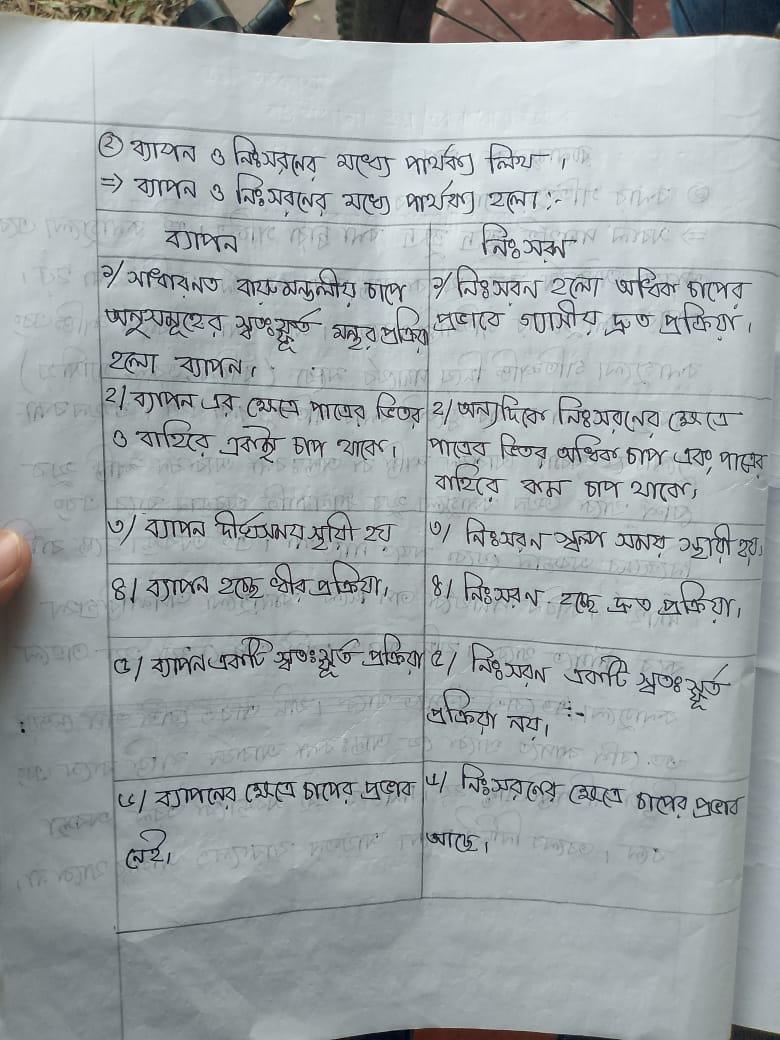 ② ব্যাপন ও নিঃসরনের মধ্যে পার্থক্য লিখ ।
⇒ ব্যাপন ও নিঃসরনের মধ্যে পার্থক্য হলো :-
ব্যাপন
নিঃসরন
১/ সাধারনত বায়ুমন্ডলীয় চাপে
অনুসমূহের স্বতঃস্ফূর্ত মন্থর প্রক্রিয়া
হলো ব্যাপন।
১/ নিঃসরন হলো অধিক চাপের
প্রভাবে গ্যাসীয় দ্রুত প্রক্রিয়া।
২/ ব্যাপন এর ক্ষেত্রে পাত্রের ভিতর
ও বাহিরে একই চাপ থাকে।
২/ অন্যদিকে নিঃসরনের ক্ষেত্রে
পাত্রের ভিতর অধিক চাপ এবং পাত্রের
বাহিরে কম চাপ থাকে।
৩/ ব্যাপন দীর্ঘসময় স্থায়ী হয়
৩/ নিঃসরন স্বল্প সময় স্থায়ী হয়।
৪/ ব্যাপন হচ্ছে ধীর প্রক্রিয়া।
৪/ নিঃসরন হচ্ছে দ্রুত প্রক্রিয়া।
৫/ ব্যাপন একটি স্বতঃস্ফূর্ত প্রক্রিয়া
৫/ নিঃসরন একটি স্বতঃস্ফূর্ত
প্রক্রিয়া নয়। :-
৬/ ব্যাপনের ক্ষেত্রে চাপের প্রভাব
নেই।
৬/ নিঃসরনের ক্ষেত্রে চাপের প্রভাব
আছে।